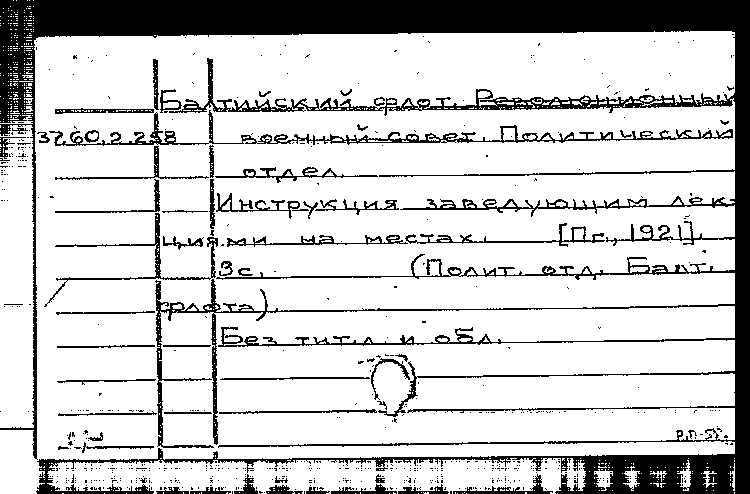 Балтийский флот. Революционный
37.60.2.258 военный совет. Политический
отдел.
Инструкция заведующим лек-
циями на местах. [Пг., 1921].
3с. (Полит. отд. Балт.
флота).
Без тит.л и обл.